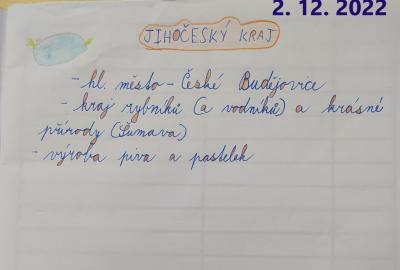 2. 12. 2022
JIHOČESKÝ KRAJ
- hl. město - České Budějovice
- kraj rybníků (a vodníků) a krásné
přírody (Šumava)
- výroba piva a pastelek